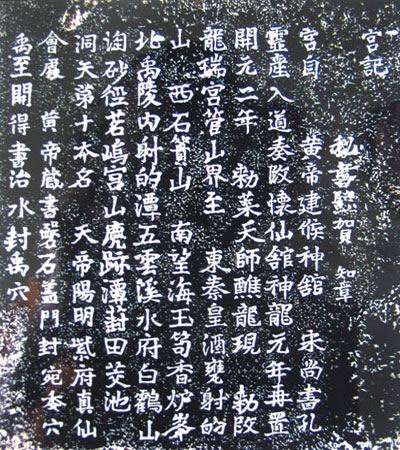 宮記
秘書監賀 知章
宮自 黃帝建候神舘 宋尚書孔
靈產入道奏改懷仙舘神龍元年再置
開元二年 勑葉天師醮龍現 勑改
龍瑞宮管山界至 東秦皇酒甕射的
山 西石簣山 南望海玉笥香炉峯
北禹陵內射的潭五雲溪水府白鶴山
淘砂徑茗塢宮山鹿跡潭葑田茭池
洞天第十本名 天帝陽明紫府真仙
會處 黃帝藏書磐石蓋門封宛委穴
禹至開得書治水封禹穴